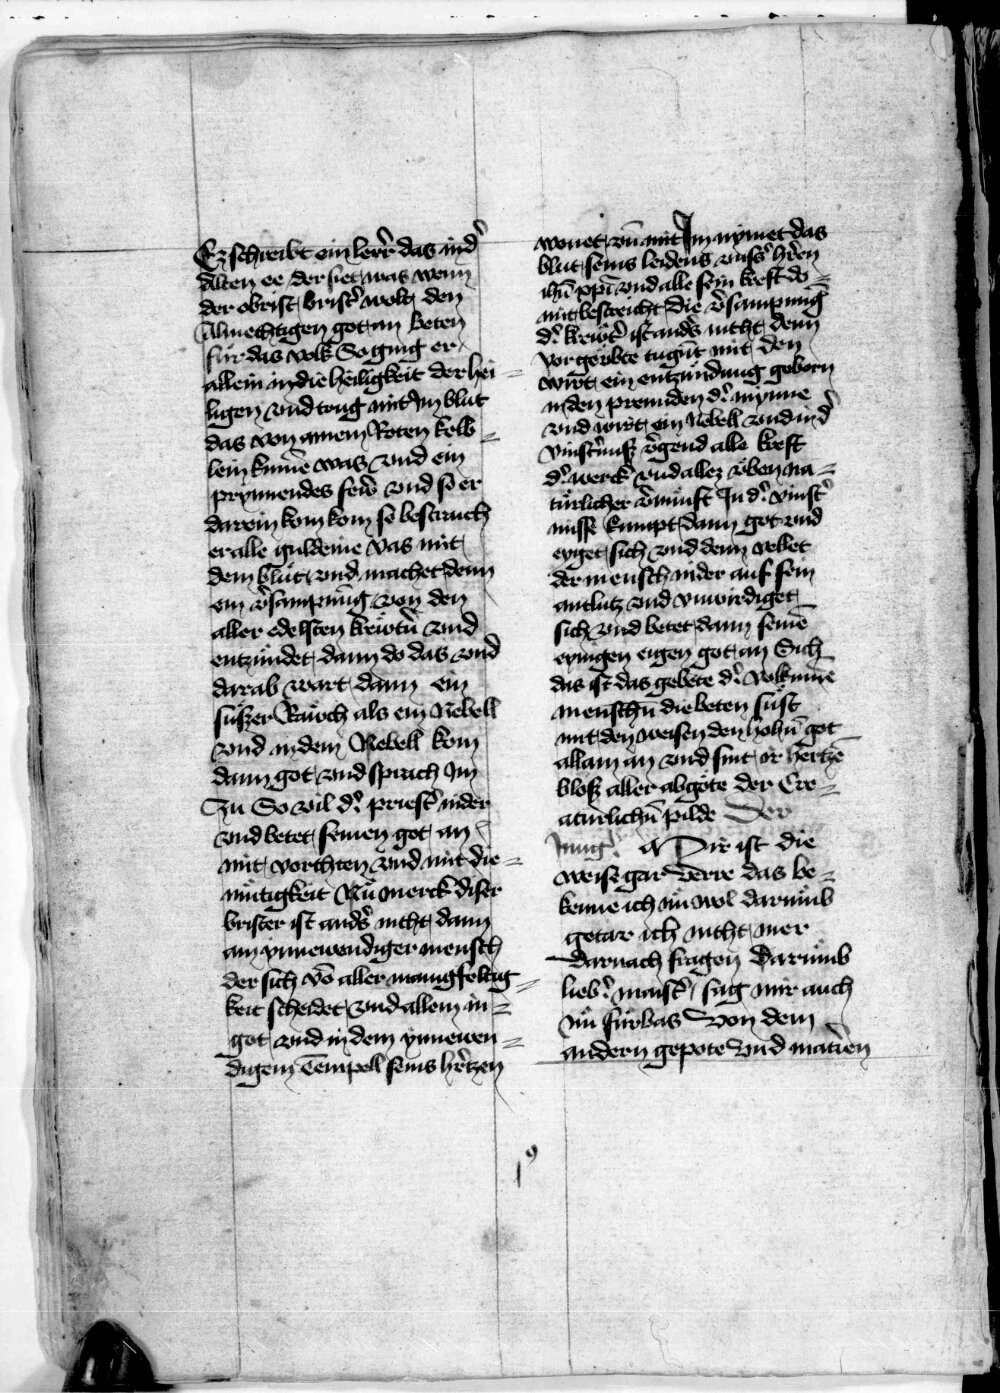 Ez schreibt ein lerer̄ das in d'
alten ee der siet was wenn
der obrist brist' wolt den
Almechtigen got an beten
für das volk So ging er
allein in die heiligkeit der hei=
ligen vnd trug mit Im blut
das von ainem Roten kelb=
lein kume was vnd ein
prynnendes fewr̄ vnd so er
darein kom kom so bestraich
er alle guldeine vas mit
dem blůt vnd machet denn
ein v'sampnūg von den
aller edelsten krewtn̄ vnd
entzündet dann do das vnd
darab wart dann ein
süszer Rauch als ein Nebell
vnd in dem Nebell kom
dann got vnd sprach Im
Zu So viel d' priest' nider
vnd betet seinen got an
mit vorchten vnd mit die=
mütigkeit Nu merck diser
brister ist and's nicht dann
ain ynnewendiger mensch
der sich vō aller manigfeltig=
keit scheidet vnd allein in=
got vnd in dem ynnewen=
digem Tempell seins h'rtzen
wonet vn̄ mit Im nymet das
blut seins leidens vns's h'ren
ihū xpī vnd alle sein kreft do=
mit bestreicht die v'sampnūg
d' krewt' ist and's nicht denn
vor geübte tugn̄t mit den
wirt ein entzündung geborn
in den premnden d' mynne
vnd wirt ein Nebell vnd in d'
vinst'nusz v'gend alle kreft
d' werck vnd allez vben na=
türlicher v'nunft In d' vinst'
nusse kumpt dann got vnd
eyget sich vnd denn vellet
der mensch nider auf sein
antlütz vnd vnwirdiget
sich vnd betet dann seinē
eynigen eigen got an Sich
das ist das gebete d' volkume
menschn̄ die beten süst
mit den weisen den hohn̄ got
allain an vnd sint ir hertzē
blosz aller abgöte der Cre=
atürlichn̄ pilde Der
Jung' Mir ist die
weise gar verre das be=
kenne ich nu wol darümb
getar ich nicht mer
darnach fragen Darümb
lieb' maist' sag mir auch
nu fürbas von dem
andern gepote vnd matrien
19